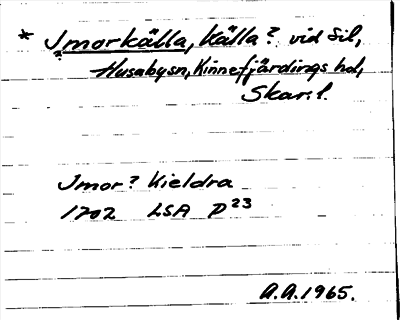 * Jmorkälla, källa? vid Sil,
Husabysn, Kinnefjärdings hd,
Skar. l.
Jmor? Kieldra
1702 LSA P23
A.A. 1965.